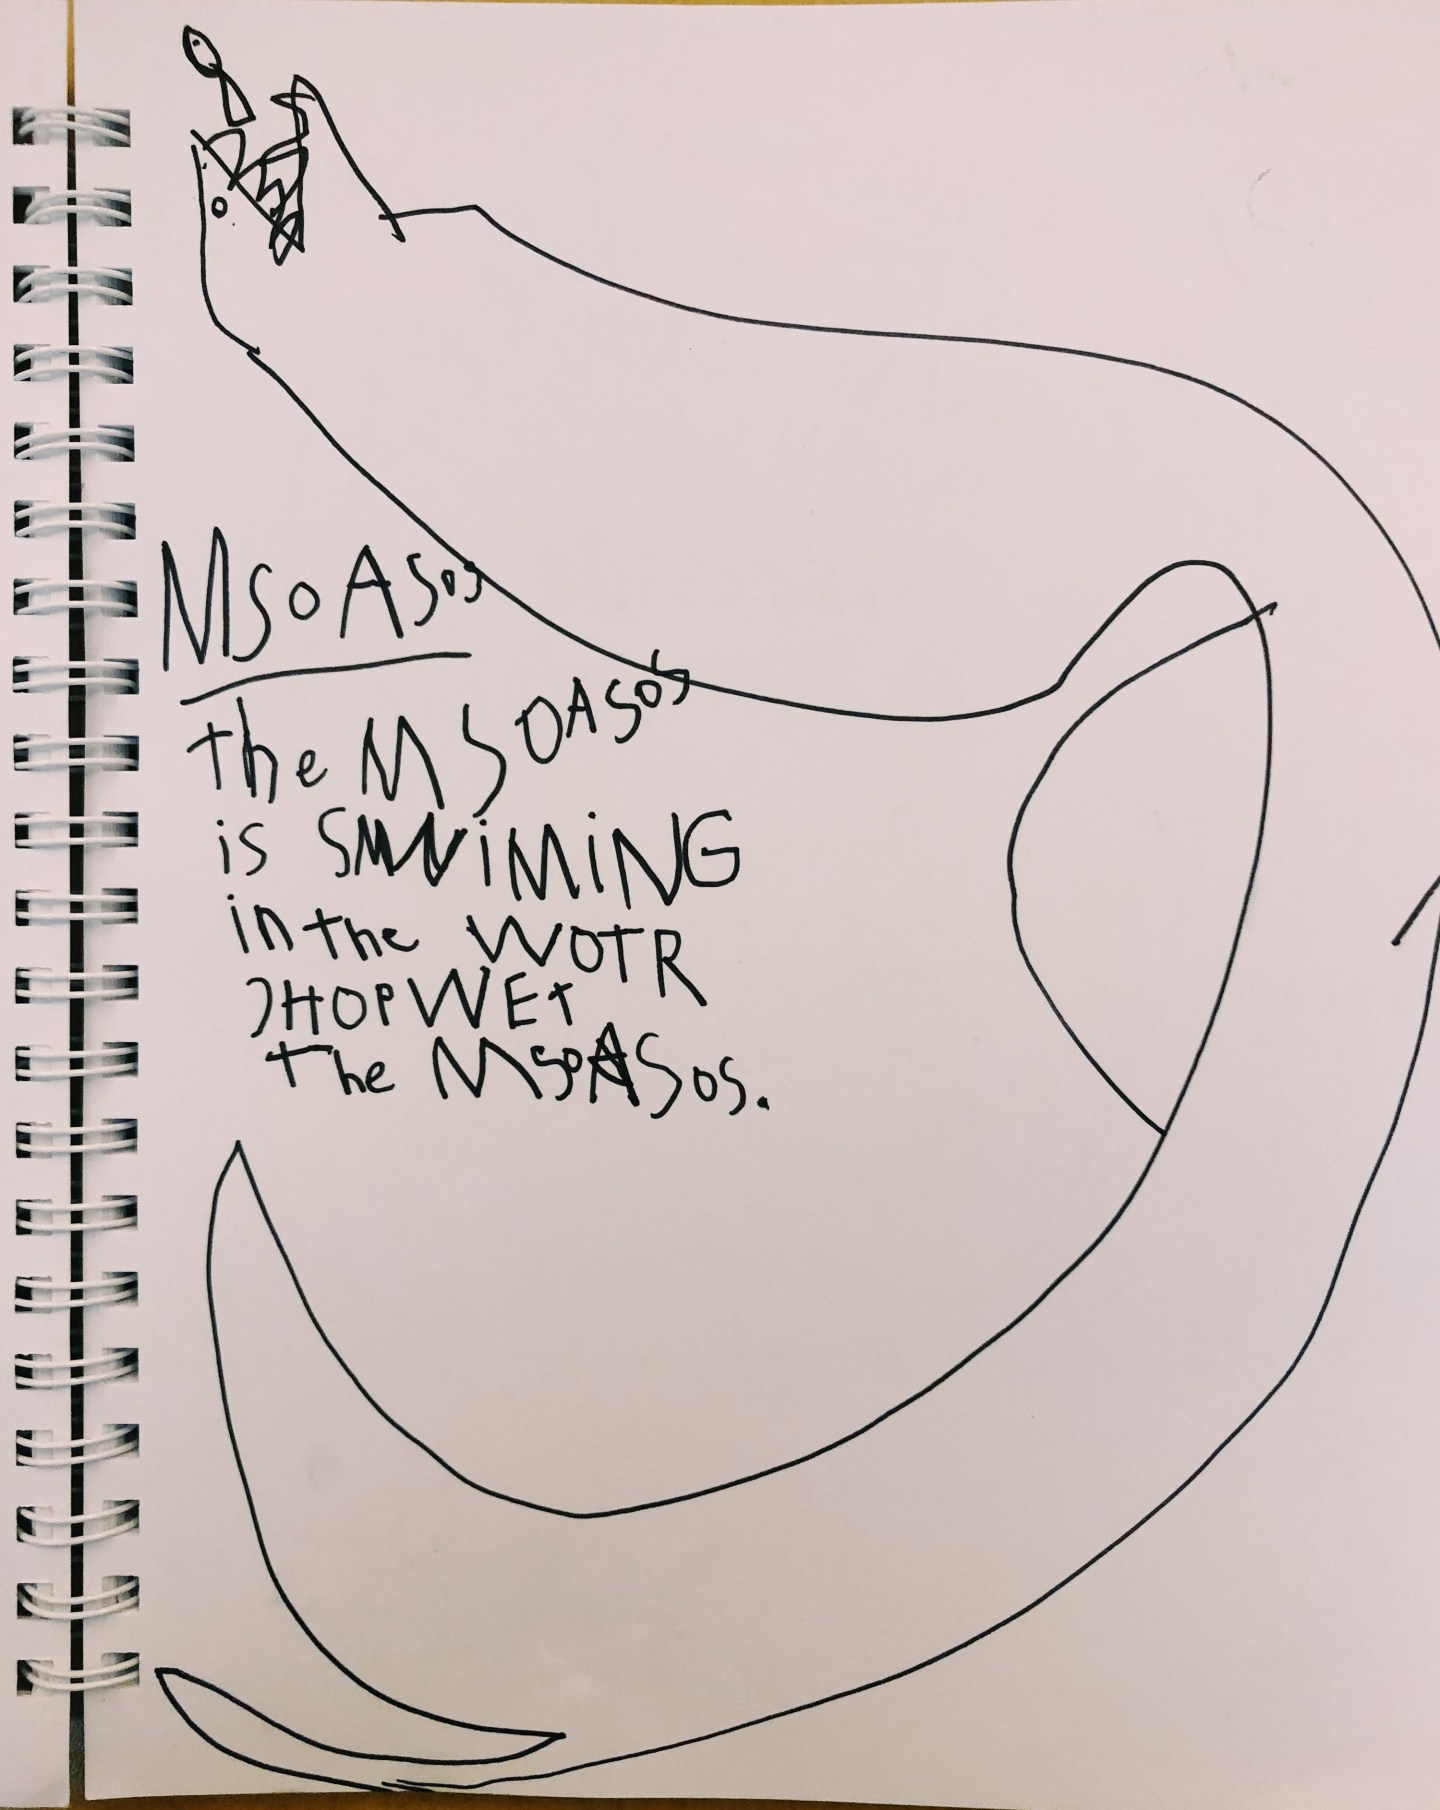 MSOASOS
the MSOASOS
is SWiMiNG
in the WOTR
HOPWEt
the MSOASOS.